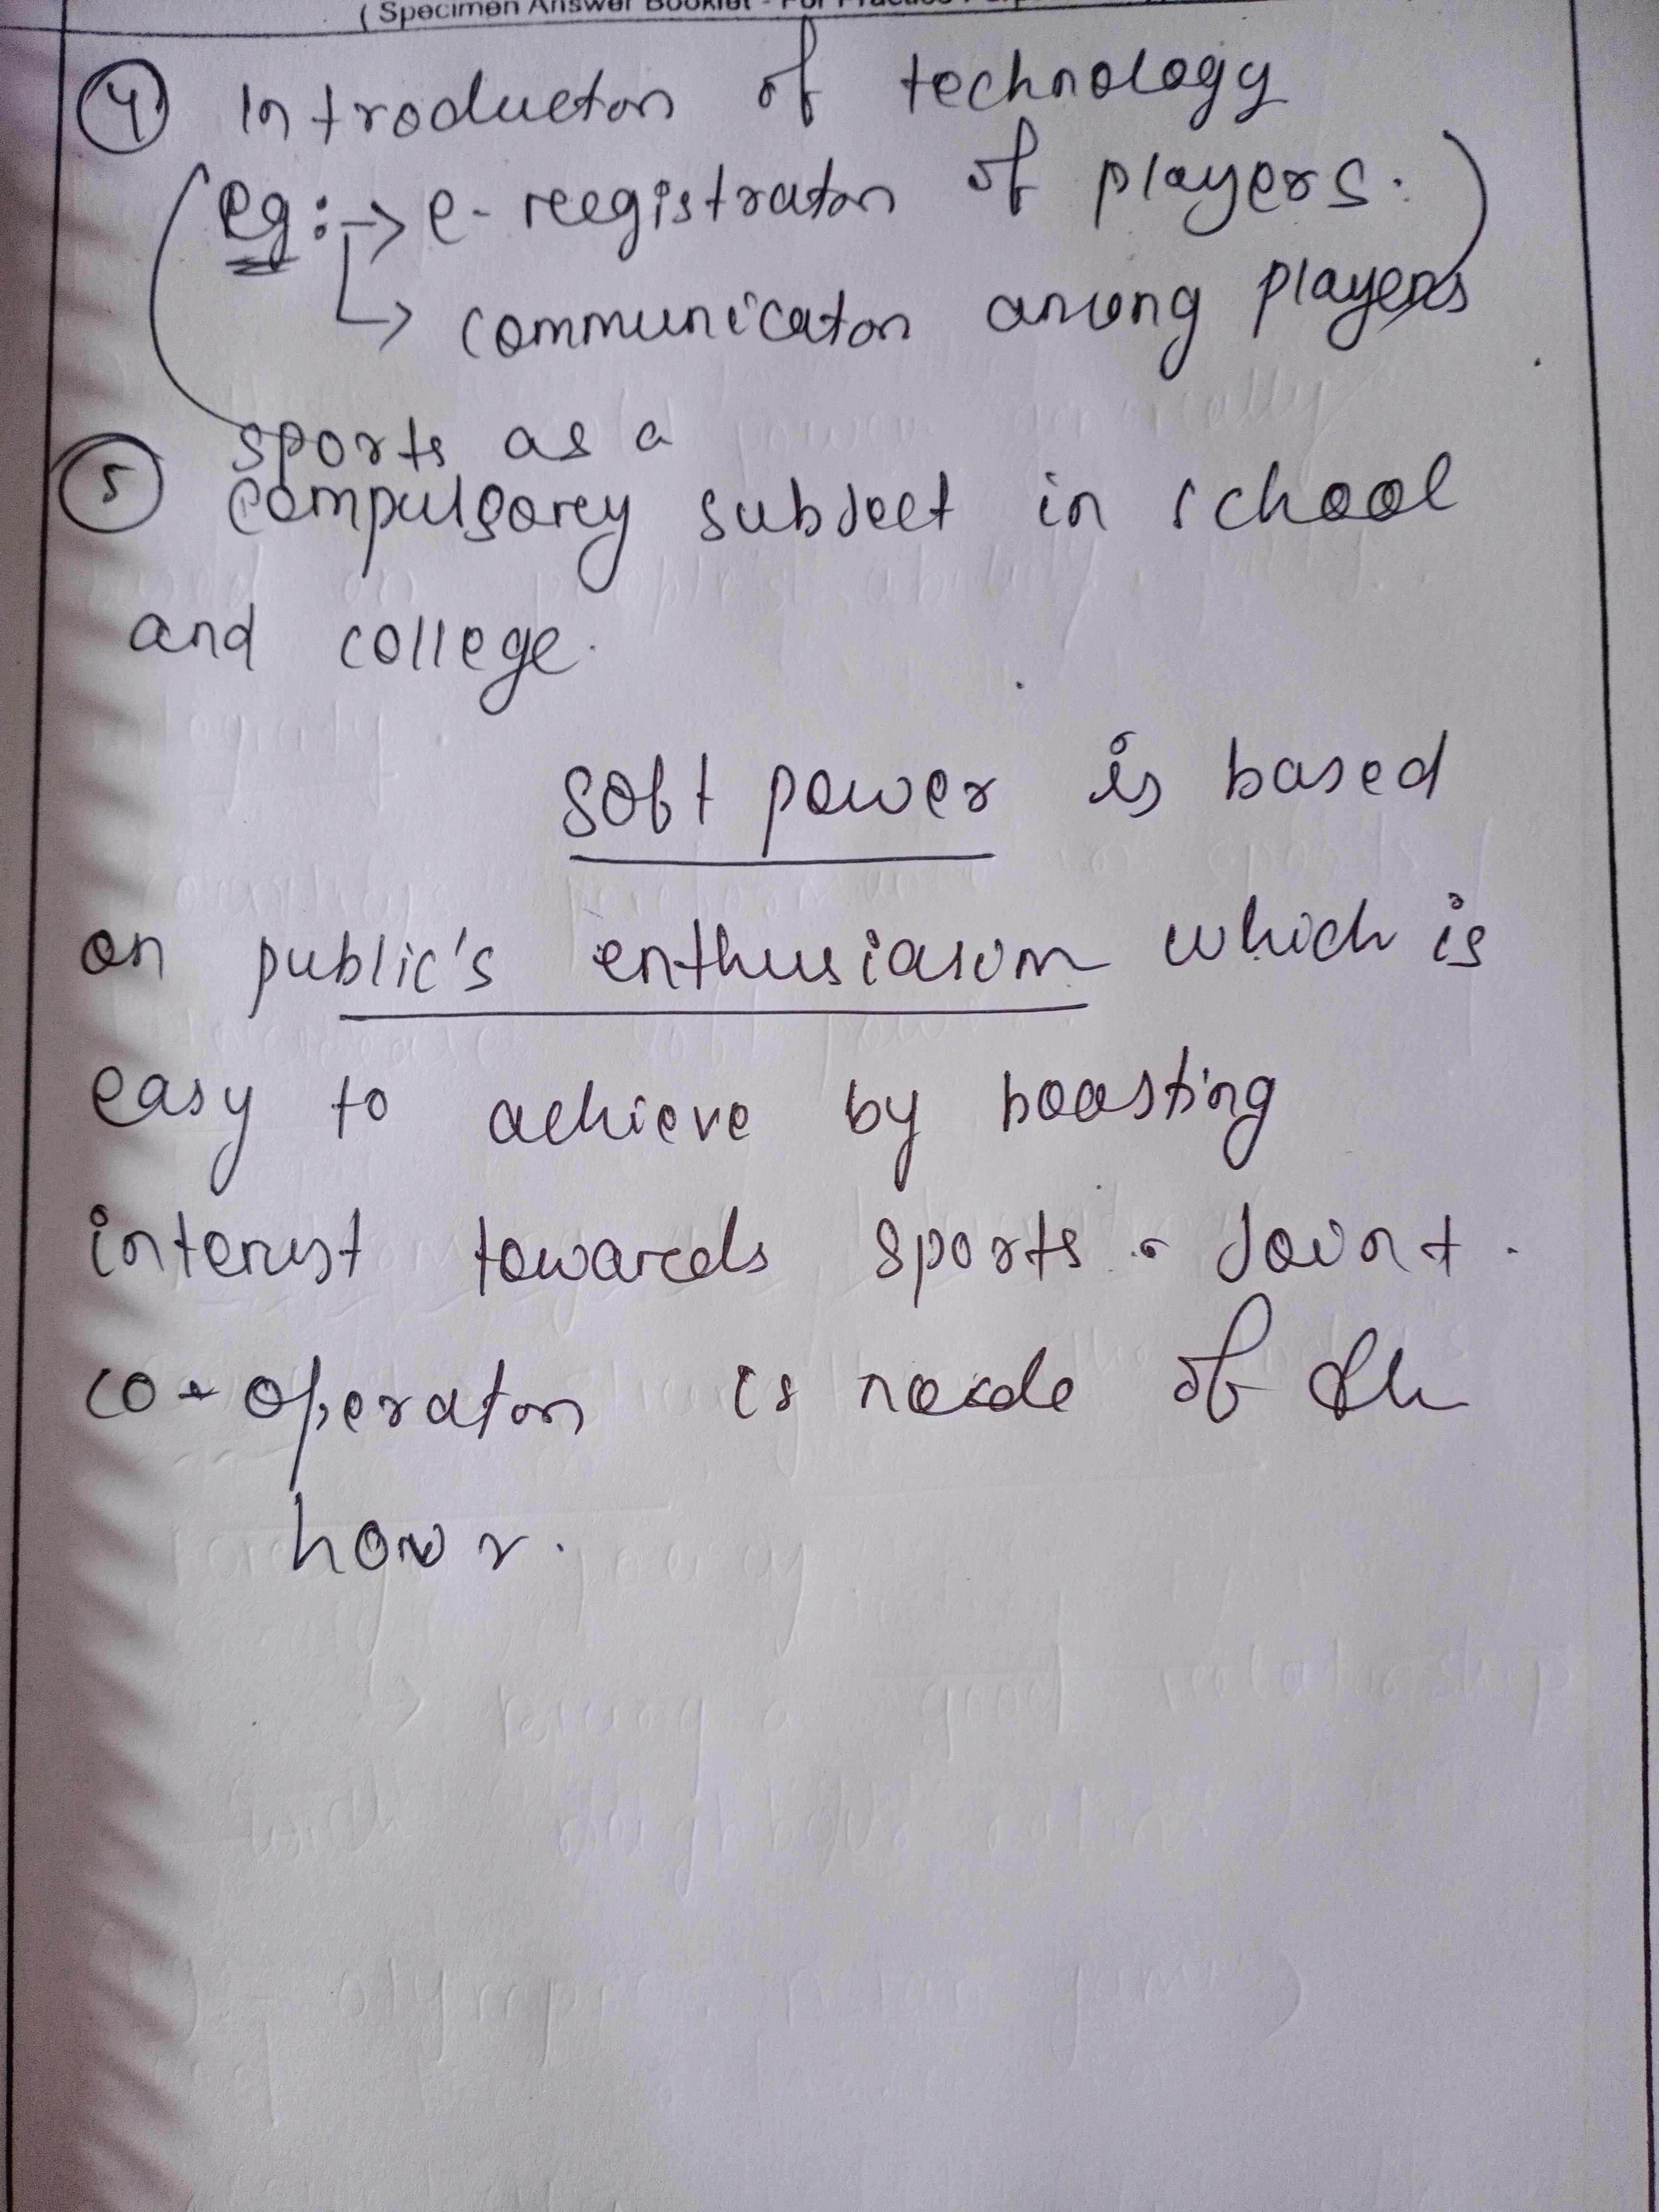 ( Specimen Answer Booklet - For Practice
4 Introducton of technology
(eg :-> e- reegistraton of players.)
-> communicaton among players
sports as a
5 compulsorey subject in school
and college.
soft power is based
on public's enthusiasim which is
easy to achieve by boosting
interest towards sports. Joint
co-operaton is neede of the
hour.